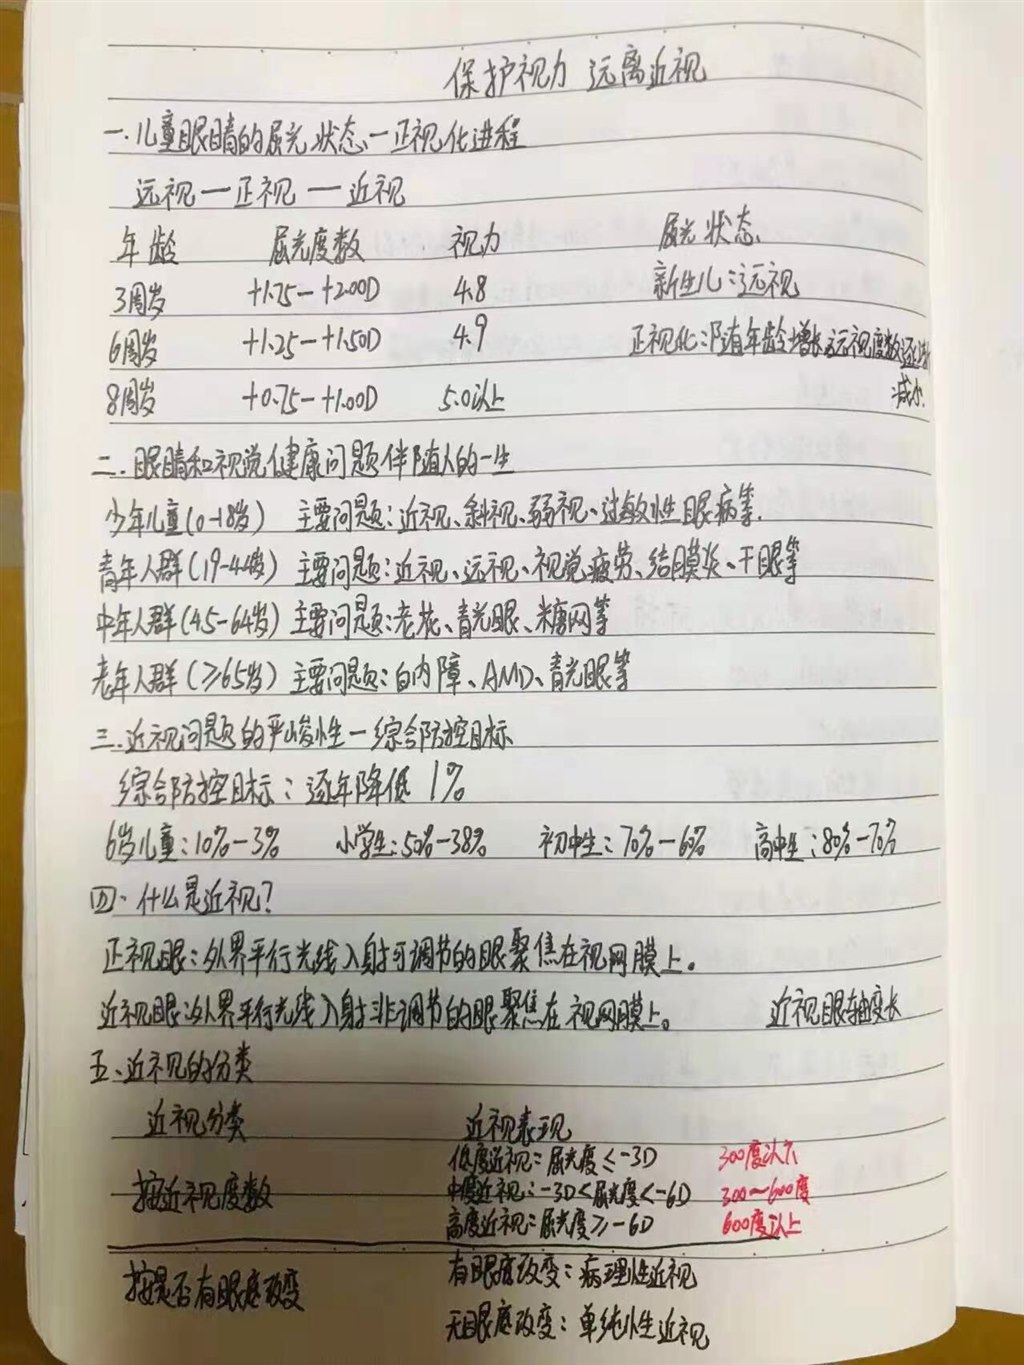 保护视力 远离近视
一.儿童眼睛的屈光状态、一正视化进程
远视一正视一近视
年龄 屈光度数 视力 屈光状态
3周岁 +1.75-+2.00D 4.8 新生儿:远视
6周岁 +1.25-+1.50D 4.9 正视化:随着年龄增长远视度数逐渐
8周岁 +0.75-+1.00D 5.0以上 减小
二.眼睛和视觉健康问题伴随人的一生
少年儿童(0-18岁) 主要问题:近视、斜视、弱视、过敏性眼病等.
青年人群(19-44岁) 主要问题:近视、远视、视觉疲劳、结膜炎、干眼等
中年人群(45-64岁) 主要问题:老花、青光眼、糖网等
老年人群(≥65岁) 主要问题:白内障、AMD、青光眼等
三.近视问题的严峻性一综合防控目标
综合防控目标:逐年降低 1%
6岁儿童:10%-3% 小学生:50%-38% 初中生:70%-60% 高中生:80%-70%
四.什么是近视?
正视眼:外界平行光线入射可调节的眼聚焦在视网膜上。
近视眼:外界平行光线入射非调节的眼聚焦在视网膜上。 近视眼轴变长
五、近视的分类
近视分类 近视表现
低度近视:屈光度≤-3D 300度以下
按近视度数 中度近视:-3D<屈光度<-6D 300~600度
高度近视:屈光度≥-6D 600度以上
按是否有眼底改变 有眼底改变:病理性近视
无眼底改变:单纯性近视